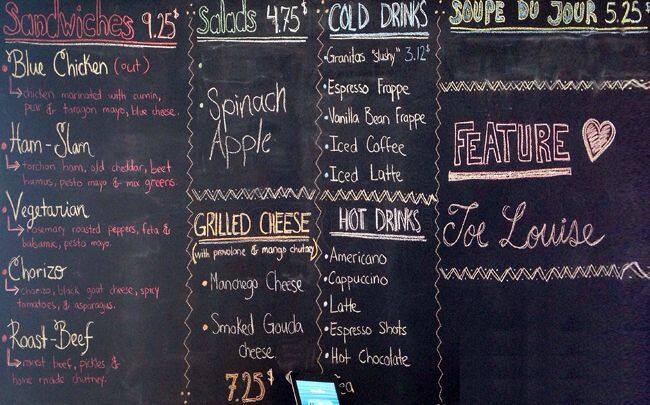 Sandwiches 9.25$
Blue Chicken (out)
chicken marinated with cumin,
pear & taragon mayo, blue cheese.
Ham-Slam
torchon ham, old cheddar, beet
humus, pesto mayo & mix greens.
Vegetarian
rosemary roasted peppers, feta &
balsamic, pesto mayo.
Chorizo
chorizo, black goat cheese, spicy
tomatoes, & asparagus.
Roast-Beef
roast beef, pickles &
home made chutney.
Salads 4.75$
Spinach
Apple
GRILLED CHEESE
(with provolone & mango chutney)
Manchego Cheese
Smoked Gouda
cheese.
7.25$
COLD DRINKS
Granitas "slushy" 3.12$
Espresso Frappe
Vanilla Bean Frappe
Iced Coffee
Iced Latte
HOT DRINKS
Americano
Cappuccino
Latte
Espresso Shots
Hot Chocolate
SOUPE DU JOUR 5.25$
FEATURE
Joe Louise